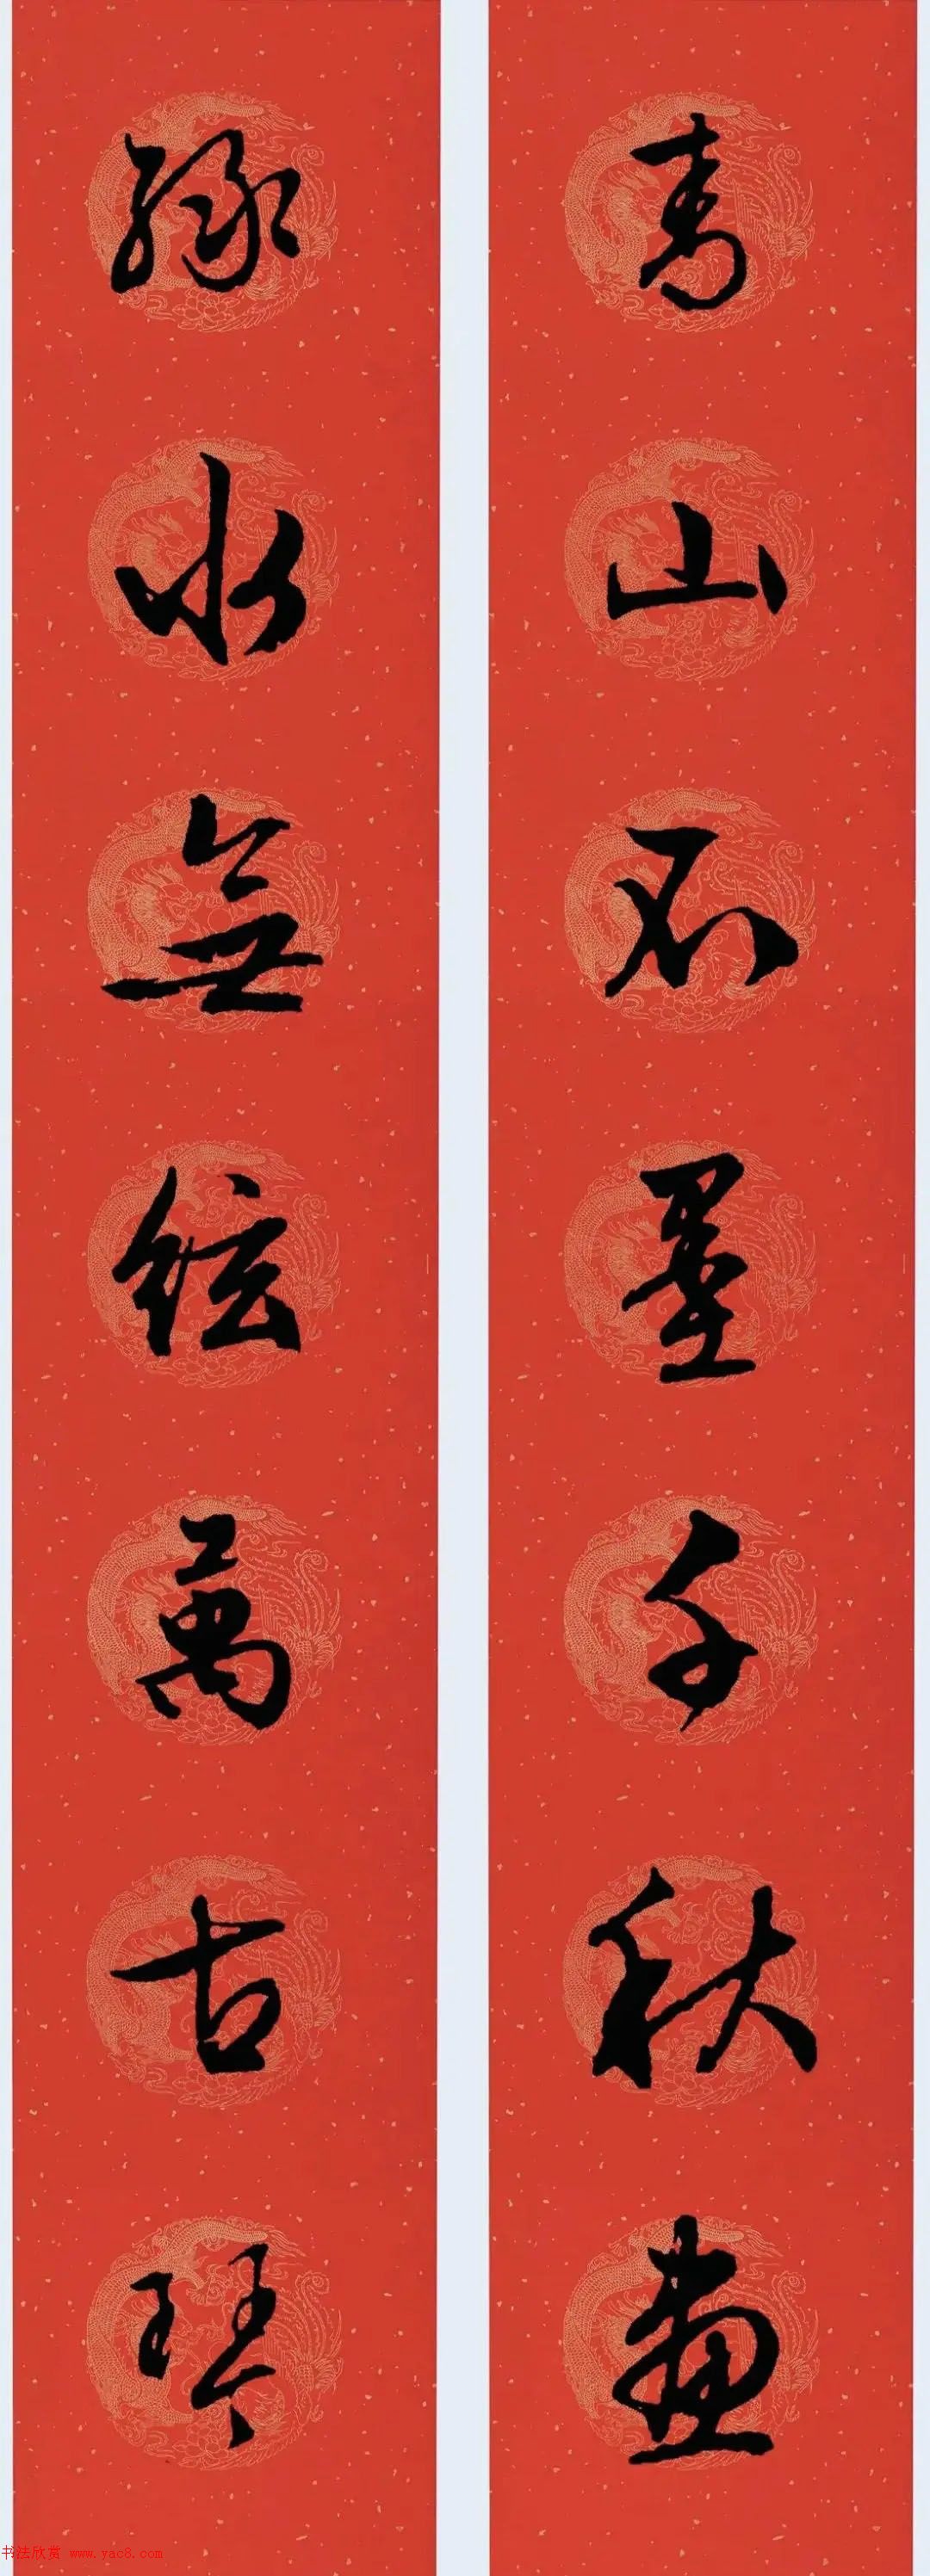 青山不墨千秋畫
綠水無絃萬古琴
书法欣赏 www.yac8.com